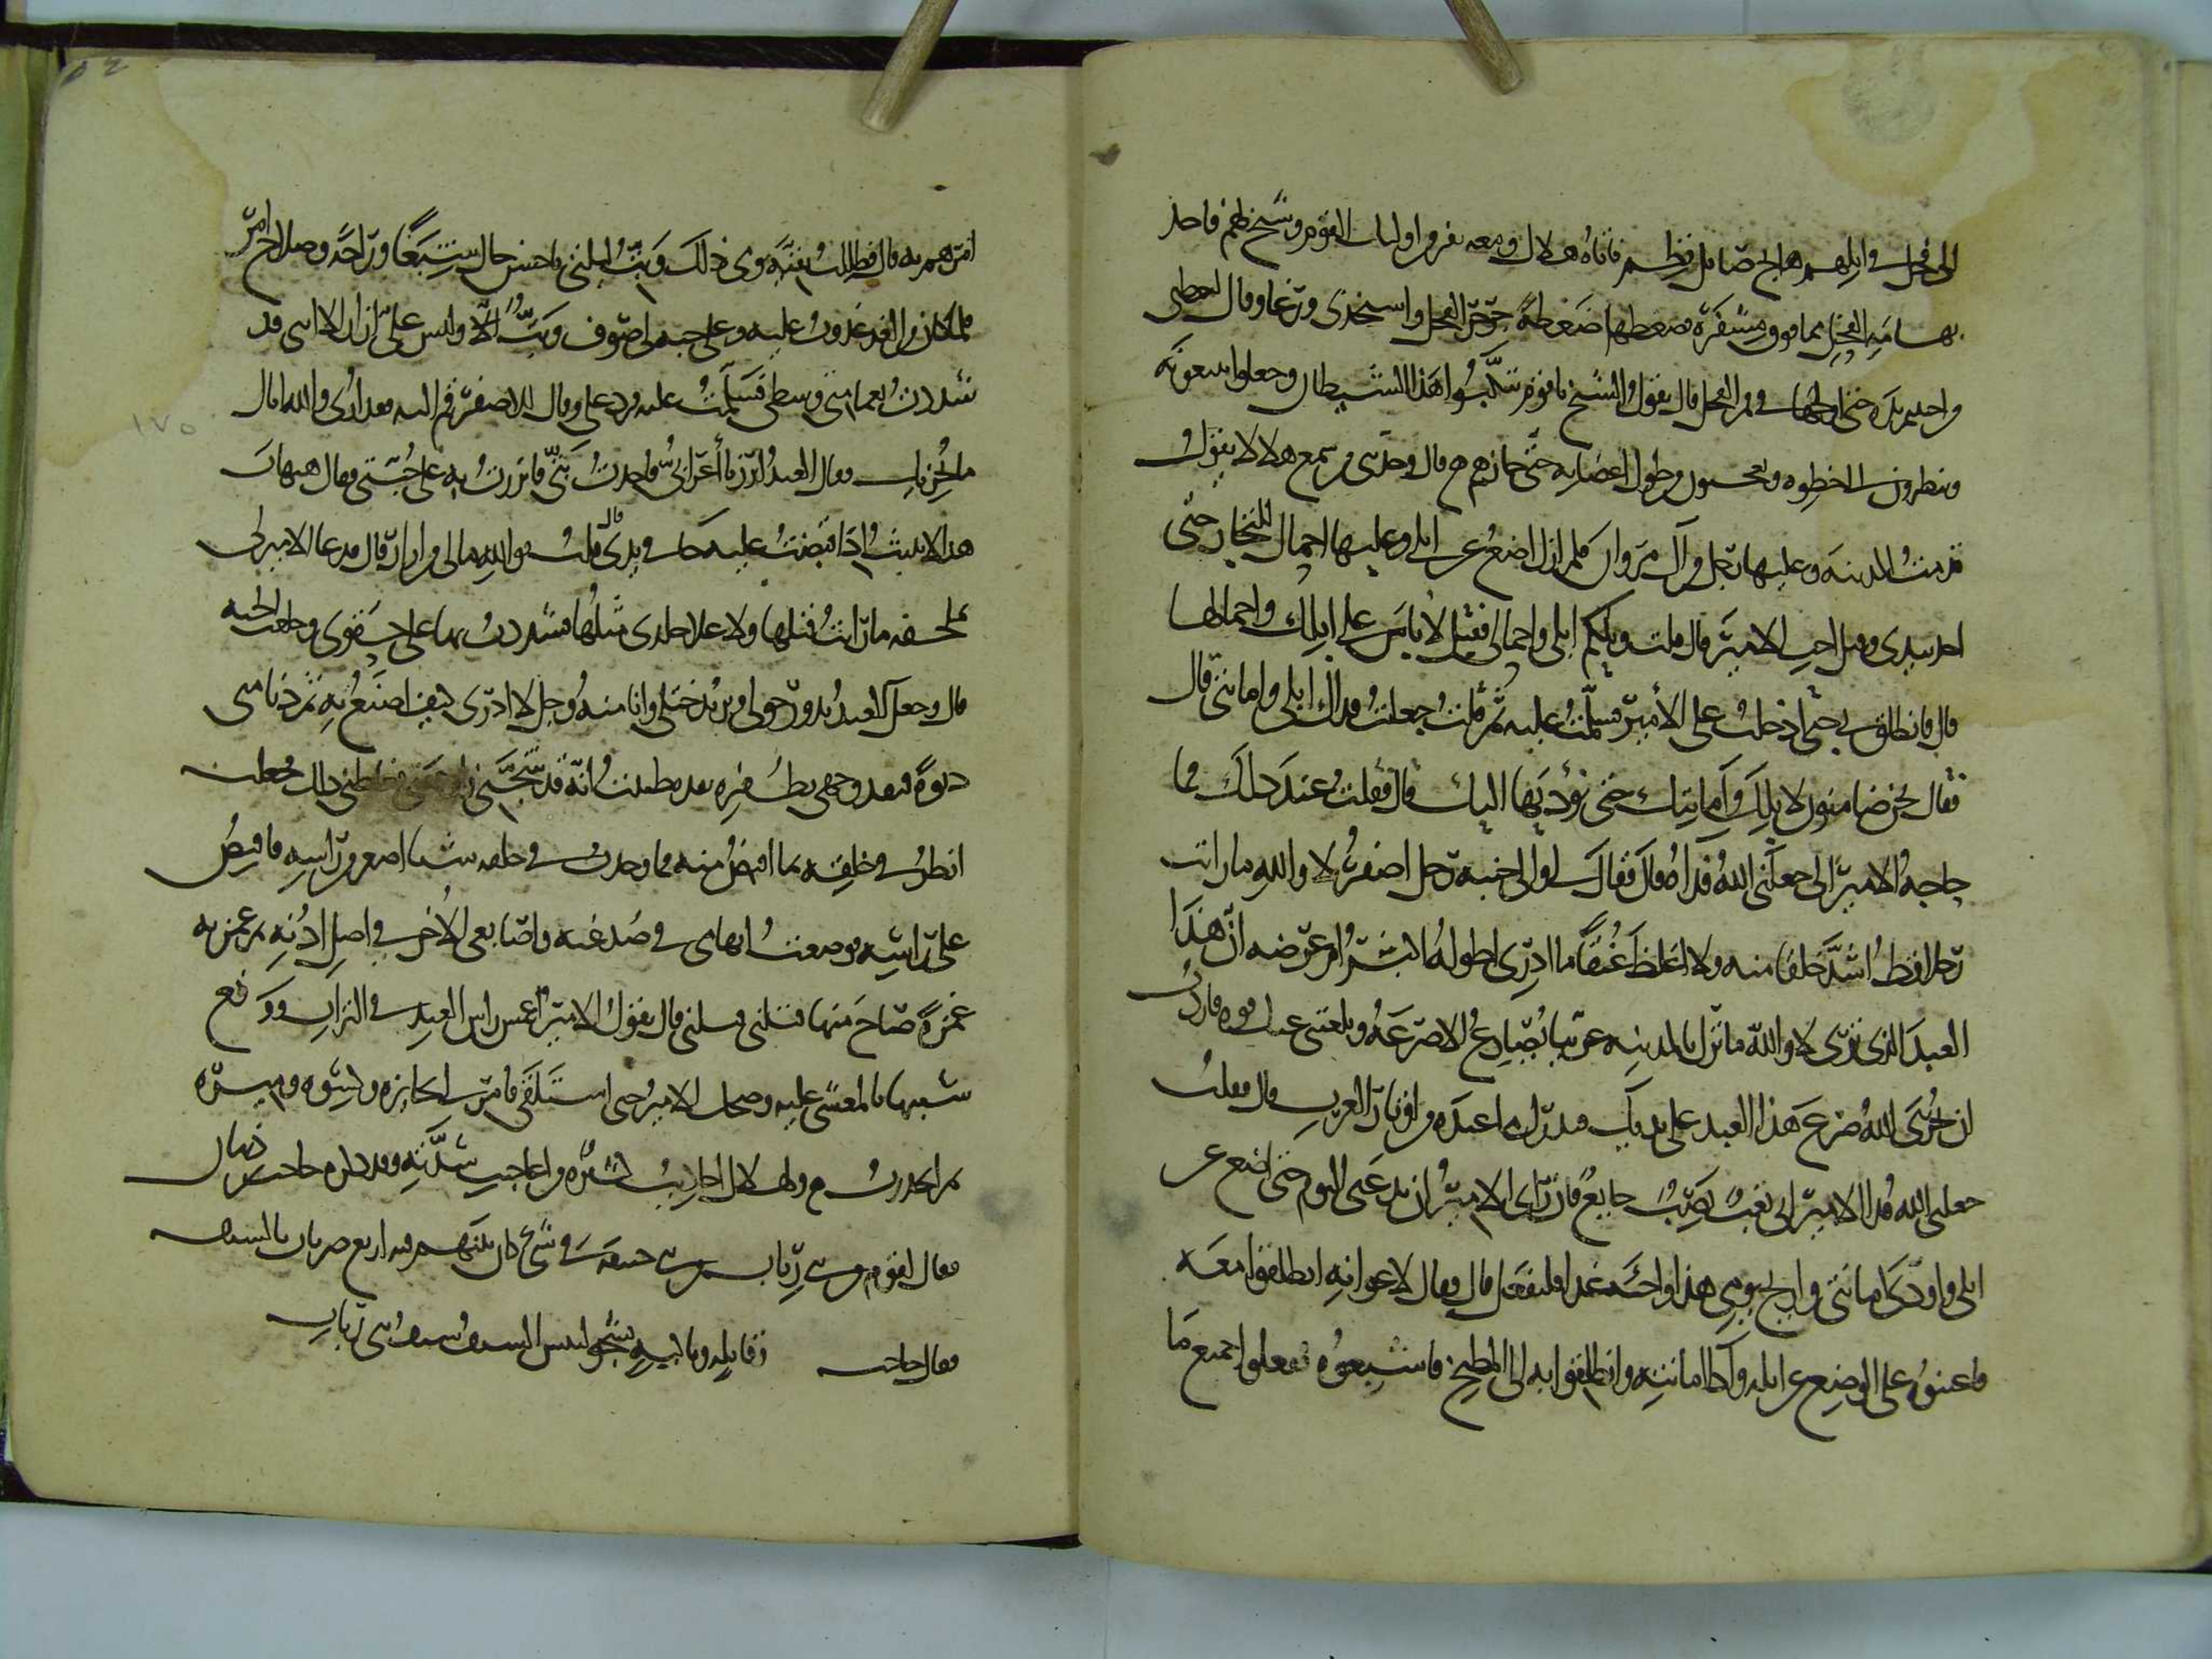 الى فحل في ابلهم هايج صايل قطم فاتاه هلال ومعه نفر من اوليات القوم وشيخ لهم فاخذ
بهامة الفحل مما فوق مشفره فضغطها ضغطة جرجر الفحل واستخذى ورغا وقال ليعطني
يده حتى اولجها في فم الفحل قال يقول الشيخ يا قوم تنكبوا هذا الشيطان وجعلوا يتبعونه
وينظرون الى خطوه ويعجبون من طول اعضايه حتى جازهم قال وحدثني من سمع هلالا يقول
قدمت المدينة وعليها رجل من آل مروان فلم ازل اضع عن ابلي وعليها احمال للتجار حتى
اخذ بيدي وقيل اجب الامير قال قلت ويلكم ابلي واحمالي فقيل لا باس على ابلك واحمالها
قال فانطلق بي حتى ادخلت على الامير فسلمت عليه ثم قلت جعلت فداك ابلي وامانتي قال
فقال نحن ضامنون لابلك وامانتك حتى نؤديها اليك قال فقلت عند ذلك فما
حاجة الامير الي جعلني الله فداه قال فقال لي والى جنبه رجل اصفر لا والله ما رايت
رجلا قط اشد خلقا منه ولا اغلظ عنقا ما ادري اطوله اكثر ام عرضه ان هذا
العبد الذي ترى لا والله ما ترك بالمدينة عربيا يصارع الا صرعه وبلغني عنك قوة فاردت
ان يجري الله صرع هذا العبد على يديك فتدرك ما عنده من اوتار العرب قال فقلت
جعلني الله فدا الامير اني لغب نصب جايع فان راى الامير ان يدعني اليوم حتى اضع عن
ابلي واودي امانتي واريح يومي هذا واجئه غدا فليفعل قال فقال لاعوانه انطلقوا معه
فاعينوه على الوضع عن ابله وادا امانته وانطلقوا به الى المطبخ فاشبعوه ففعلوا جميع ما
امرهم به قال فظللت بقية يومي ذلك وبت ليلتي باحسن حال شبعا وراحة وصلاح امر
فلما كان من الغد غدوت عليه وعلي جبة لي صوف وبت الا وليس علي ازار الا اني قد
شددت بعمامتي وسطي فسلمت عليه فرد علي وقال للاصفر قم اليه فقد ارى والله انه اتاك
بما يخزيك فقال العبد اتزر يا أعرابي فاخذت بتي فاتزرت به على جبتي فقال هيهات
هذا لا يثبت اذا قبضت عليه جا في يدي قال قلت فوالله مالي من ازار قال فدعا الامير لي
بملحفة ما رايت قبلها ولا علا جلدي مثلها فشددت بها على حقوي وخلعت الجبة
قال وجعل العبد يدور حولي ويريد ختلي وانا منه وجل لا ادري كيف اصنع به ثم دنا مني
دنوة فنقد جبهتي بظفره نقدة ظننت انه قد شجني واوجعني فغاظني ذلك فجعلت
انظر في خلقه بما اقبض منه فما وجدت في خلقه شيئا اصغر من راسه فاقبض
على راسه فوضعت ابهامي في صدغيه واصابعي الاخر في اصل اذنيه ثم غمزته
غمزة صاح منها قتلني قتلني قال يقول الامير اغمس راس العبد في التراب ووقع
شبيها بالمغشي عليه وضحك الامير حتى استلقى فامر لي بجايزة وكسوة وميرة
ثم انحدرت ولهلال احاديث كثيرة واعاجيب شدته وقد ذكره حاجب ذبيان
فقال لقوم من بني رباب من بني حنيفة في شيء كان بينهم فيه اربع ضربات بالسيف
فقال حاجب وقايلة وباكية بشجو لبيس السيف سيف بني رباب
١٧٥